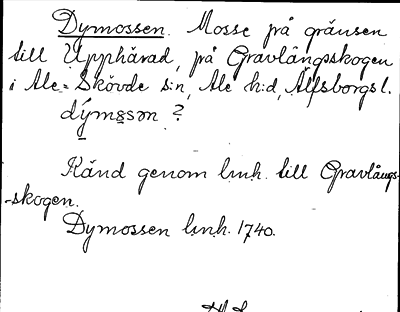 Dymossen. Mosse på gränsen
till Upphärad, på Gravlångsskogen
i Ale-Skövde s:n, Ale h:d, Älfsborgs l.
dým̥s̥s̥ən ?
Känd genom lmh. till Gravlångs-
-skogen.
Dymossen lmh. 1740.